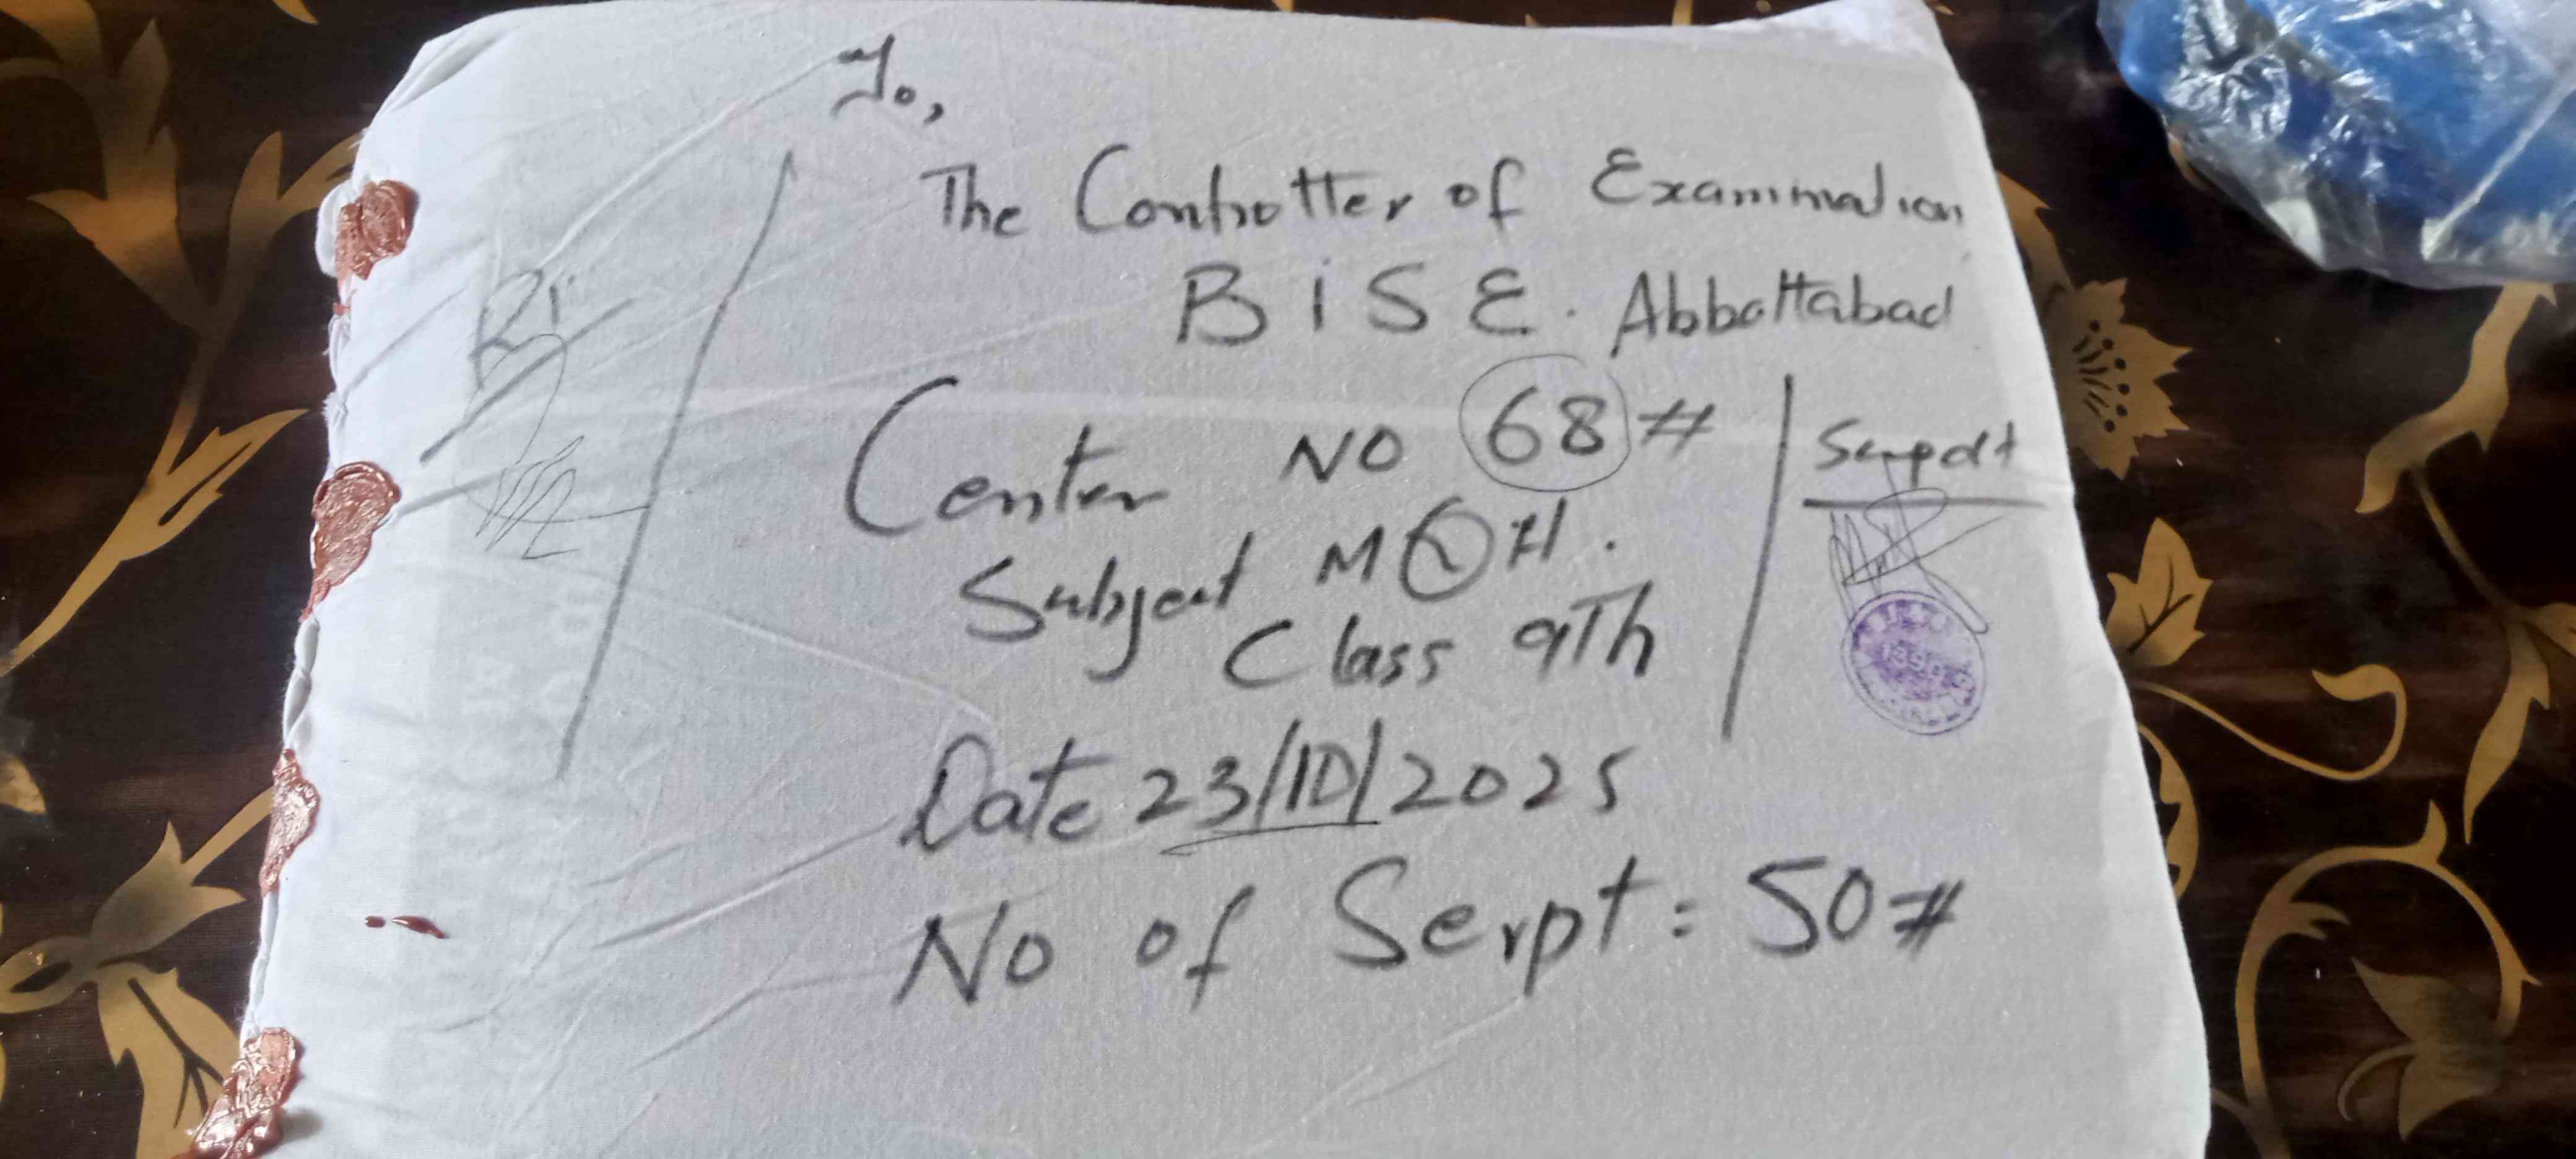 To,
The Controtter of Examination
BiSE. Abbottabad
Center NO 68 #
Subject M Q H.
Class 9Th
Date 23/10/2025
No of Serpt: 50 #
Supdt
RI